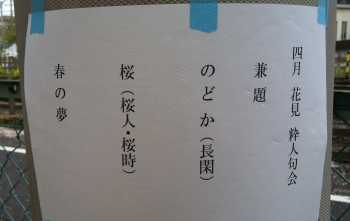 四月 花見 粋人句会
兼題
のどか（長閑）
桜（桜人・桜時）
春の夢